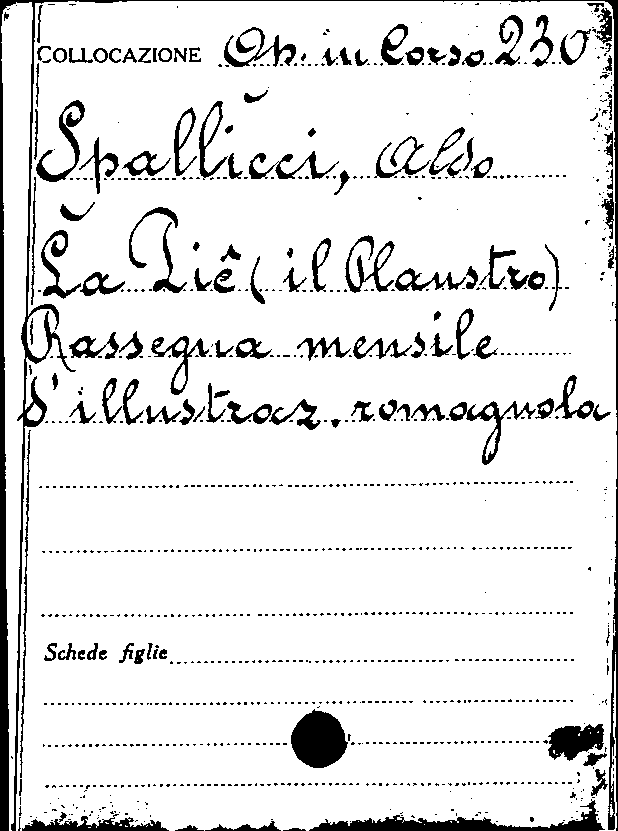 COLLOCAZIONE Op. in Corso 230
Spallicci, Aldo
La Piê (il Plaustro)
Rassegna mensile
d'illustraz. romagnola
Schede figlie